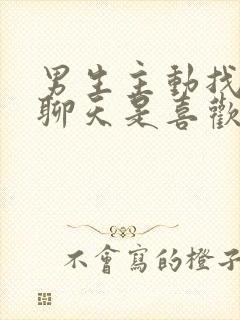 男生主動找
聊天是喜歡
不會寫的橙子